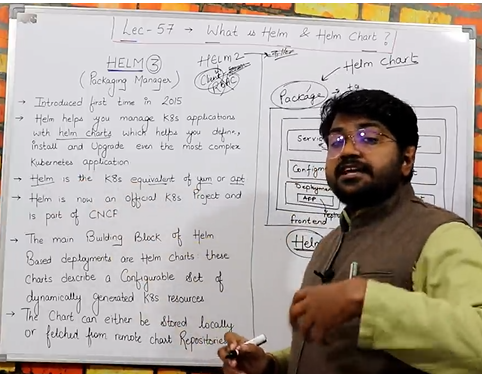 Lec-57 → What is Helm & Helm Chart?
HELM ③
(Packaging Manager)
→ Introduced first time in 2015
→ Helm helps you manage K8s applications
with helm charts which helps you define,
Install and Upgrade even the most complex
Kubernetes application
→ Helm is the K8s equivalent of yum or apt
→ Helm is now an official K8s Project and
is part of CNCF
→ The main Building Block of Helm
Based deployments are Helm charts these
Charts describe a Configurable set of
dynamically generated K8s resources
→ The Chart can either be stored locally
or fetched from remote chart Repositories
HELM 2
Helm chart
Package
Servic
Configm
Deployment
APP
frontend
Helm